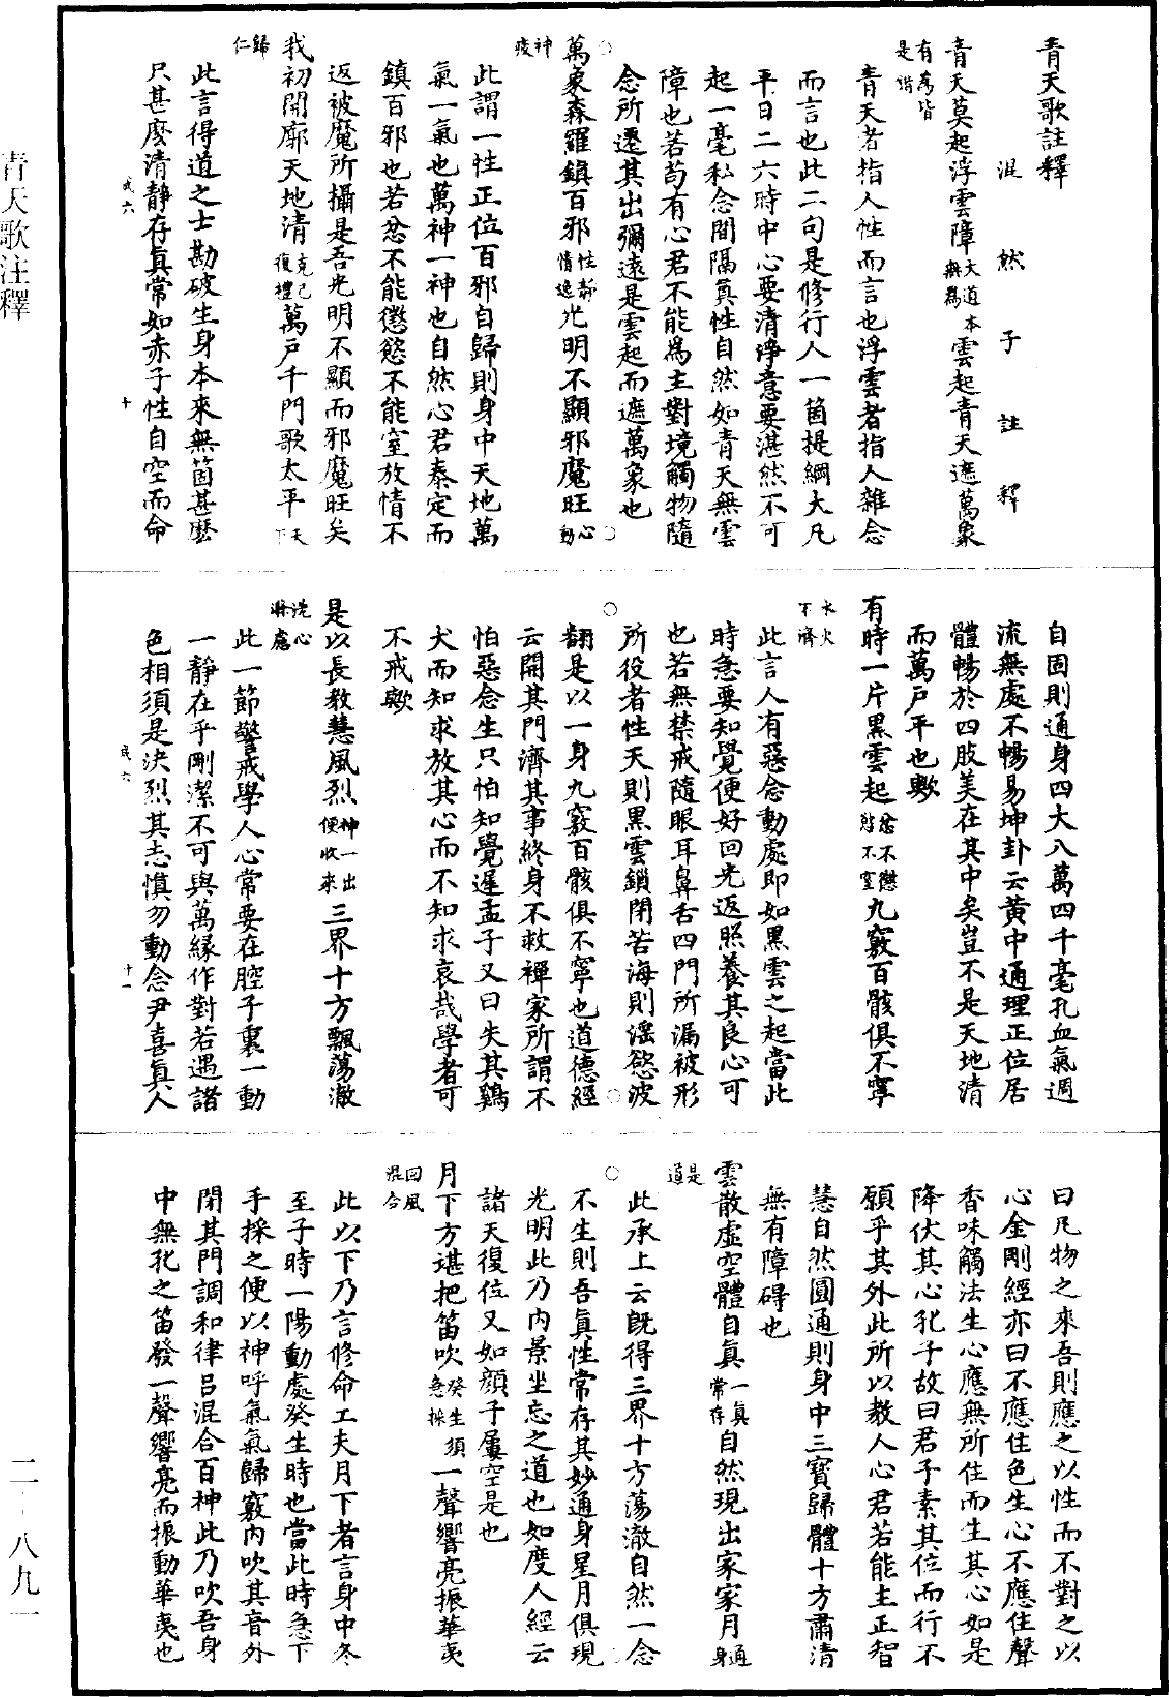 青天歌註釋
混然子註釋
青天莫起浮雲障大道本無爲雲起青天遮萬象
有爲皆是謟
青天者指人性而言也浮雲者指人雜念
而言也此二句是修行人一箇提綱大凡
平日二六時中心要清淨意要湛然不可
起一毫私念間隔眞性自然如青天無雲
障也若苟有心君不能爲主對境觸物隨
念所遷其出彌遠是雲起而遮萬象也
○萬象森羅鎮百邪性靜情逸光明不顯邪魔旺心動
神疲
此謂一性正位百邪自歸則身中天地萬
氣一氣也萬神一神也自然心君泰定而
鎮百邪也若忿不能懲慾不能窒放情不
返被魔所攝是吾光明不顯而邪魔旺矣
我初開廓天地清克己復禮萬戸千門歌太平天下
歸仁
此言得道之士勘破生身本來無箇甚麽
尺甚麽清靜存眞常如赤子性自空而命
自固則通身四大八萬四千毫孔血氣週
流無處不暢易坤卦云黃中通理正位居
體暢於四肢美在其中矣豈不是天地清
而萬戸平也歟
有時一片黑雲起忿不懲慾不窒九竅百骸俱不寧
水火不濟
此言人有惡念動處即如黑雲之起當此
時急要知覺便好回光返照養其良心可
也若無禁戒隨眼耳鼻舌四門所漏被形
所役者性天則黑雲鎖閉苦海則滛慾波
○翻是以一身九竅百骸俱不寧也道德經
云開其門濟其事終身不救禪家所謂不
怕惡念生只怕知覺遲孟子又曰失其鷄
犬而知求放其心而不知求哀哉學者可
不戒歟
是以長教慧風烈神一出便收來三界十方飄蕩澈
洗心滌慮
此一節警戒學人心常要在腔子裏一動
一靜在乎剛潔不可與萬緣作對若遇諸
色相須是決烈其志愼勿動念尹喜眞人
曰凡物之來吾則應之以性而不對之以
心金剛經亦曰不應住色生心不應住聲
香味觸法生心應無所住而生其心如是
降伏其心孔子故曰君子素其位而行不
願乎其外此所以教人心君若能主正智
慧自然圓通則身中三寶歸體十方肅清
無有障碍也
雲散虛空體自眞一眞常存自然現出家家月通身
是道
○此承上云既得三界十方蕩澈自然一念
不生則吾眞性常存其妙通身星月俱現
光明此乃內景坐忘之道也如度人經云
諸天復位又如顔子屢空是也
月下方堪把笛吹癸生急須採一聲響亮振華夷
回風混合
此以下乃言修命工夫月下者言身中冬
至子時一陽動處癸生時也當此時急下
手採之便以神呼氣氣歸竅內吹其音外
閉其門調和律呂混合百神此乃吹吾身
中無孔之笛發一聲響亮而振動華夷也
青天歌注釋
二-八九一
成六
十
成六
十一